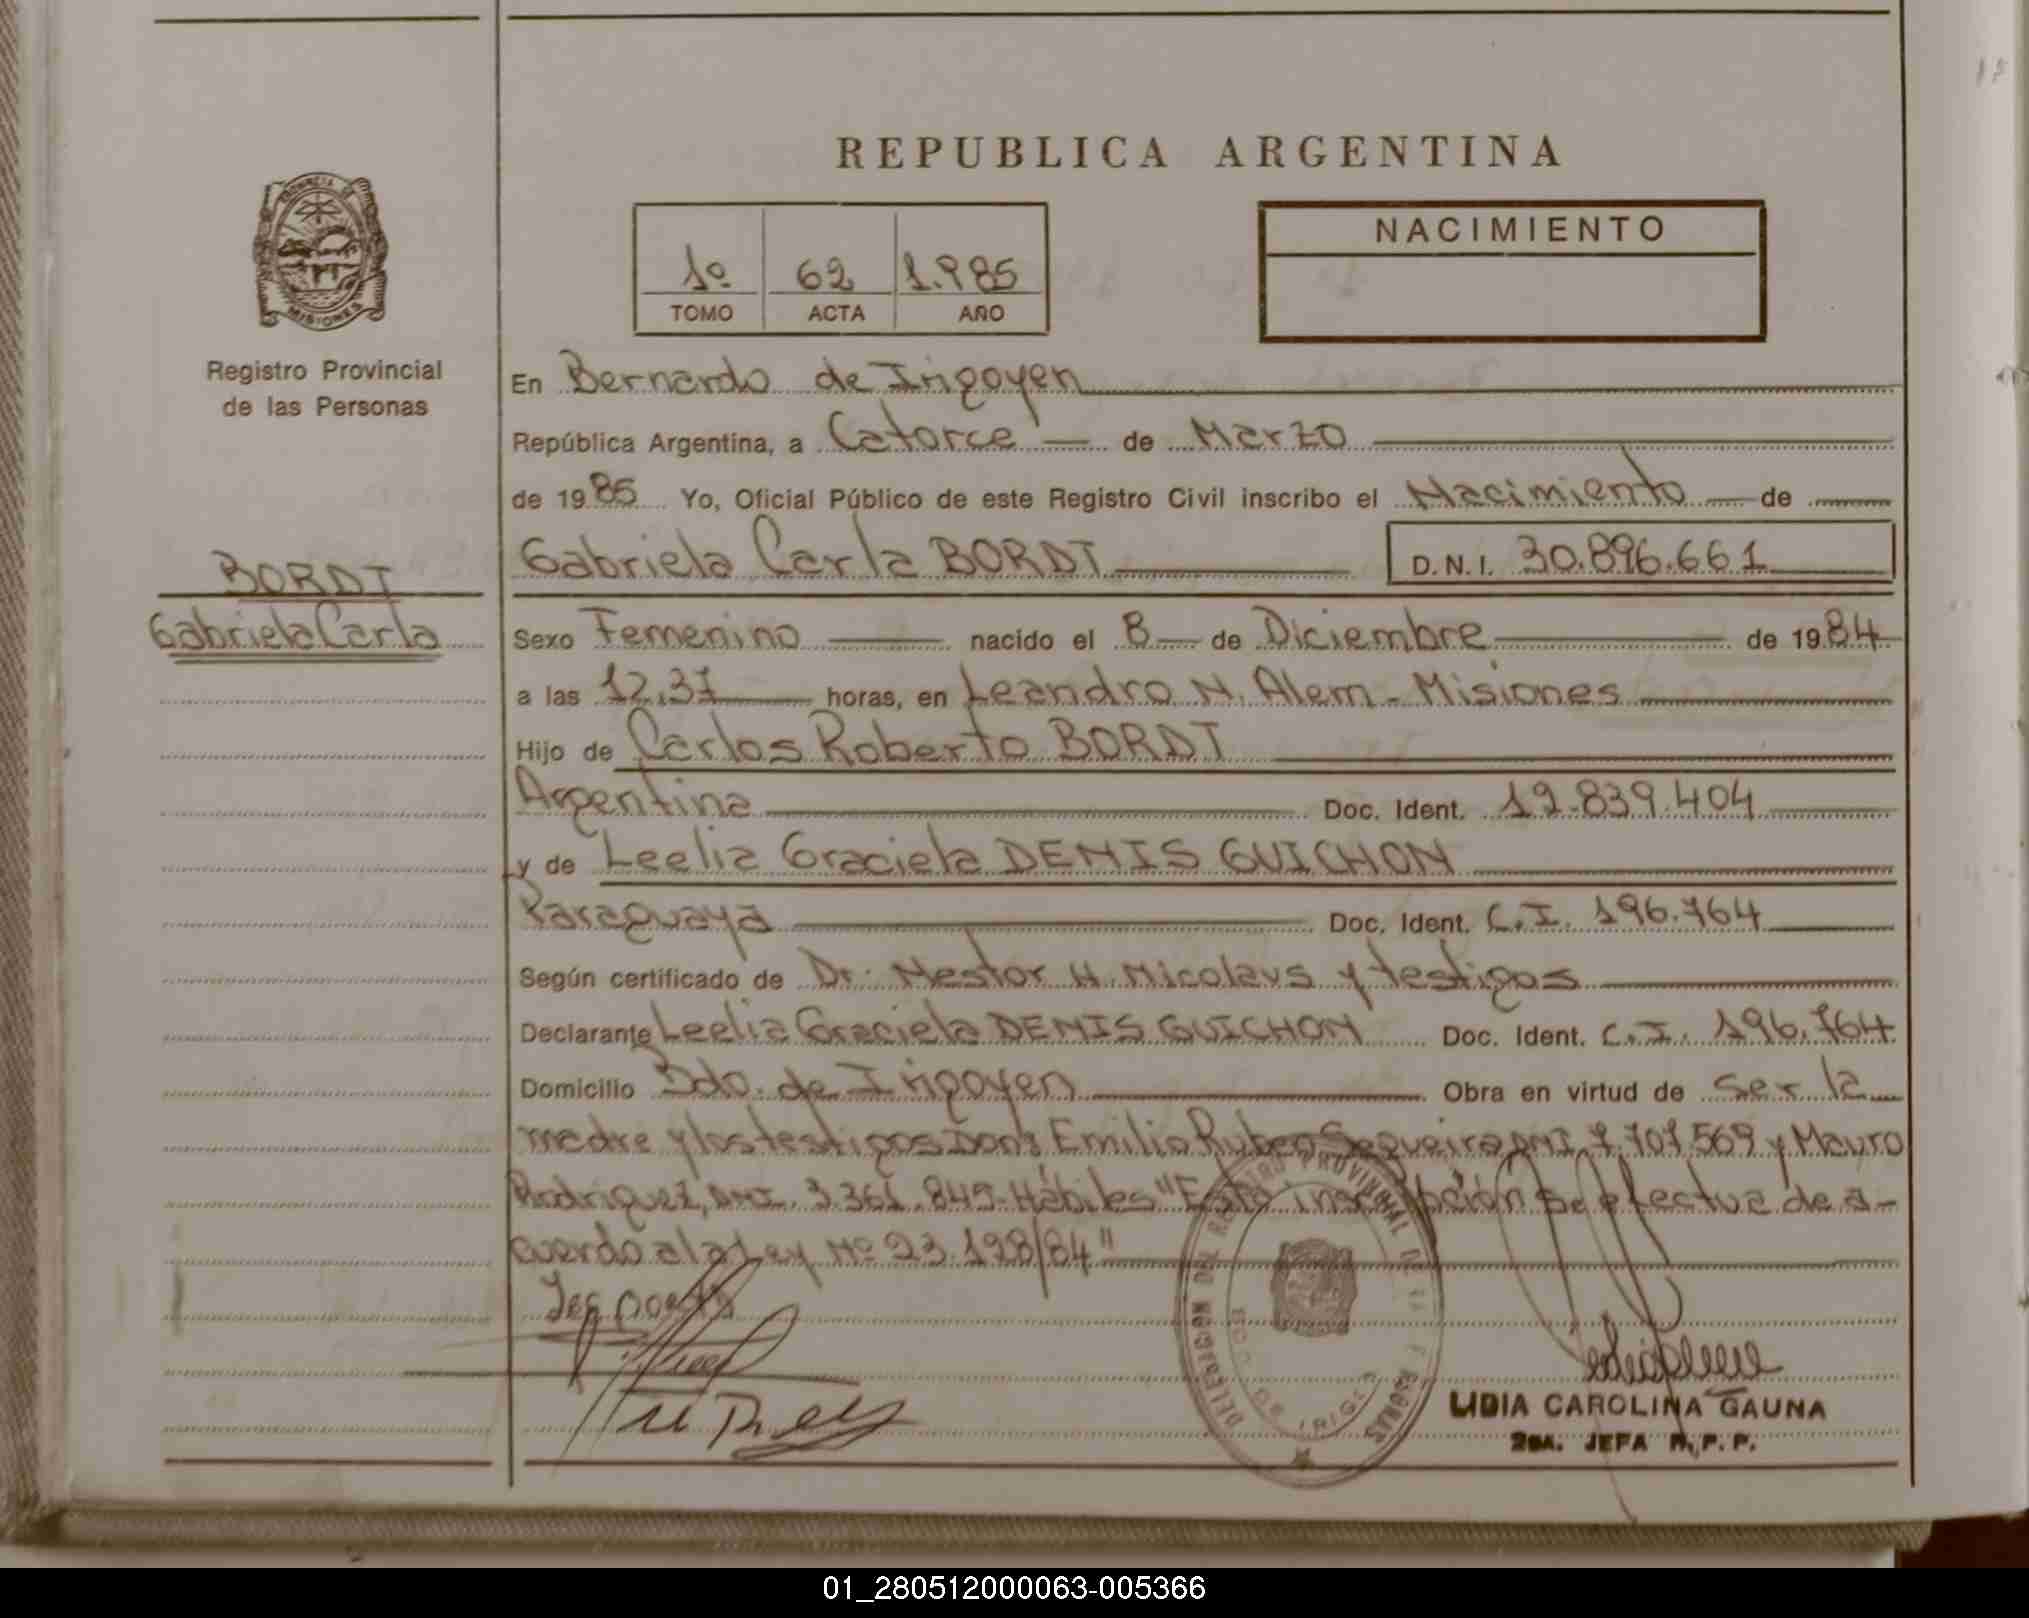 REPUBLICA ARGENTINA
PROVINCIA DE
MISIONES
Registro Provincial
de las Personas
1º 62 1.985
TOMO ACTA AÑO
NACIMIENTO
En Bernardo de Irigoyen
República Argentina, a Catorce de Marzo
de 1985 Yo, Oficial Público de este Registro Civil inscribo el Nacimiento de
Gabriela Carla BORDT D.N.I. 30.896.661
BORDT
Gabriela Carla
Sexo Femenino nacido el 8 de Diciembre de 1984
a las 12,37 horas, en Leandro N. Alem - Misiones
Hijo de Carlos Roberto BORDT
Argentina Doc. Ident. 12.839.404
y de Leelia Graciela DENIS GUICHON
Paraguaya Doc. Ident. C.I. 196.764
Según certificado de Dr. Nestor H. Nicolaus y testigos
Declarante Leelia Graciela DENIS GUICHON Doc. Ident. C.I. 196.764
Domicilio Bdo. de Irigoyen Obra en virtud de ser la
madre y los testigos Dons Emilio Ruben Sequeira DNI 7.707.569 y Mauro
Rodriguez, DNI. 3.361.849 - Hábiles "Esta inscripción se efectua de a-
cuerdo a la Ley Nº 23.128/84"
DELEGACION DEL REGISTRO PROVINCIAL DE LAS PERSONAS
BDO. DE IRIGOYEN
LIDIA CAROLINA GAUNA
2DA. JEFA R.P.P.
01_280512000063-005366